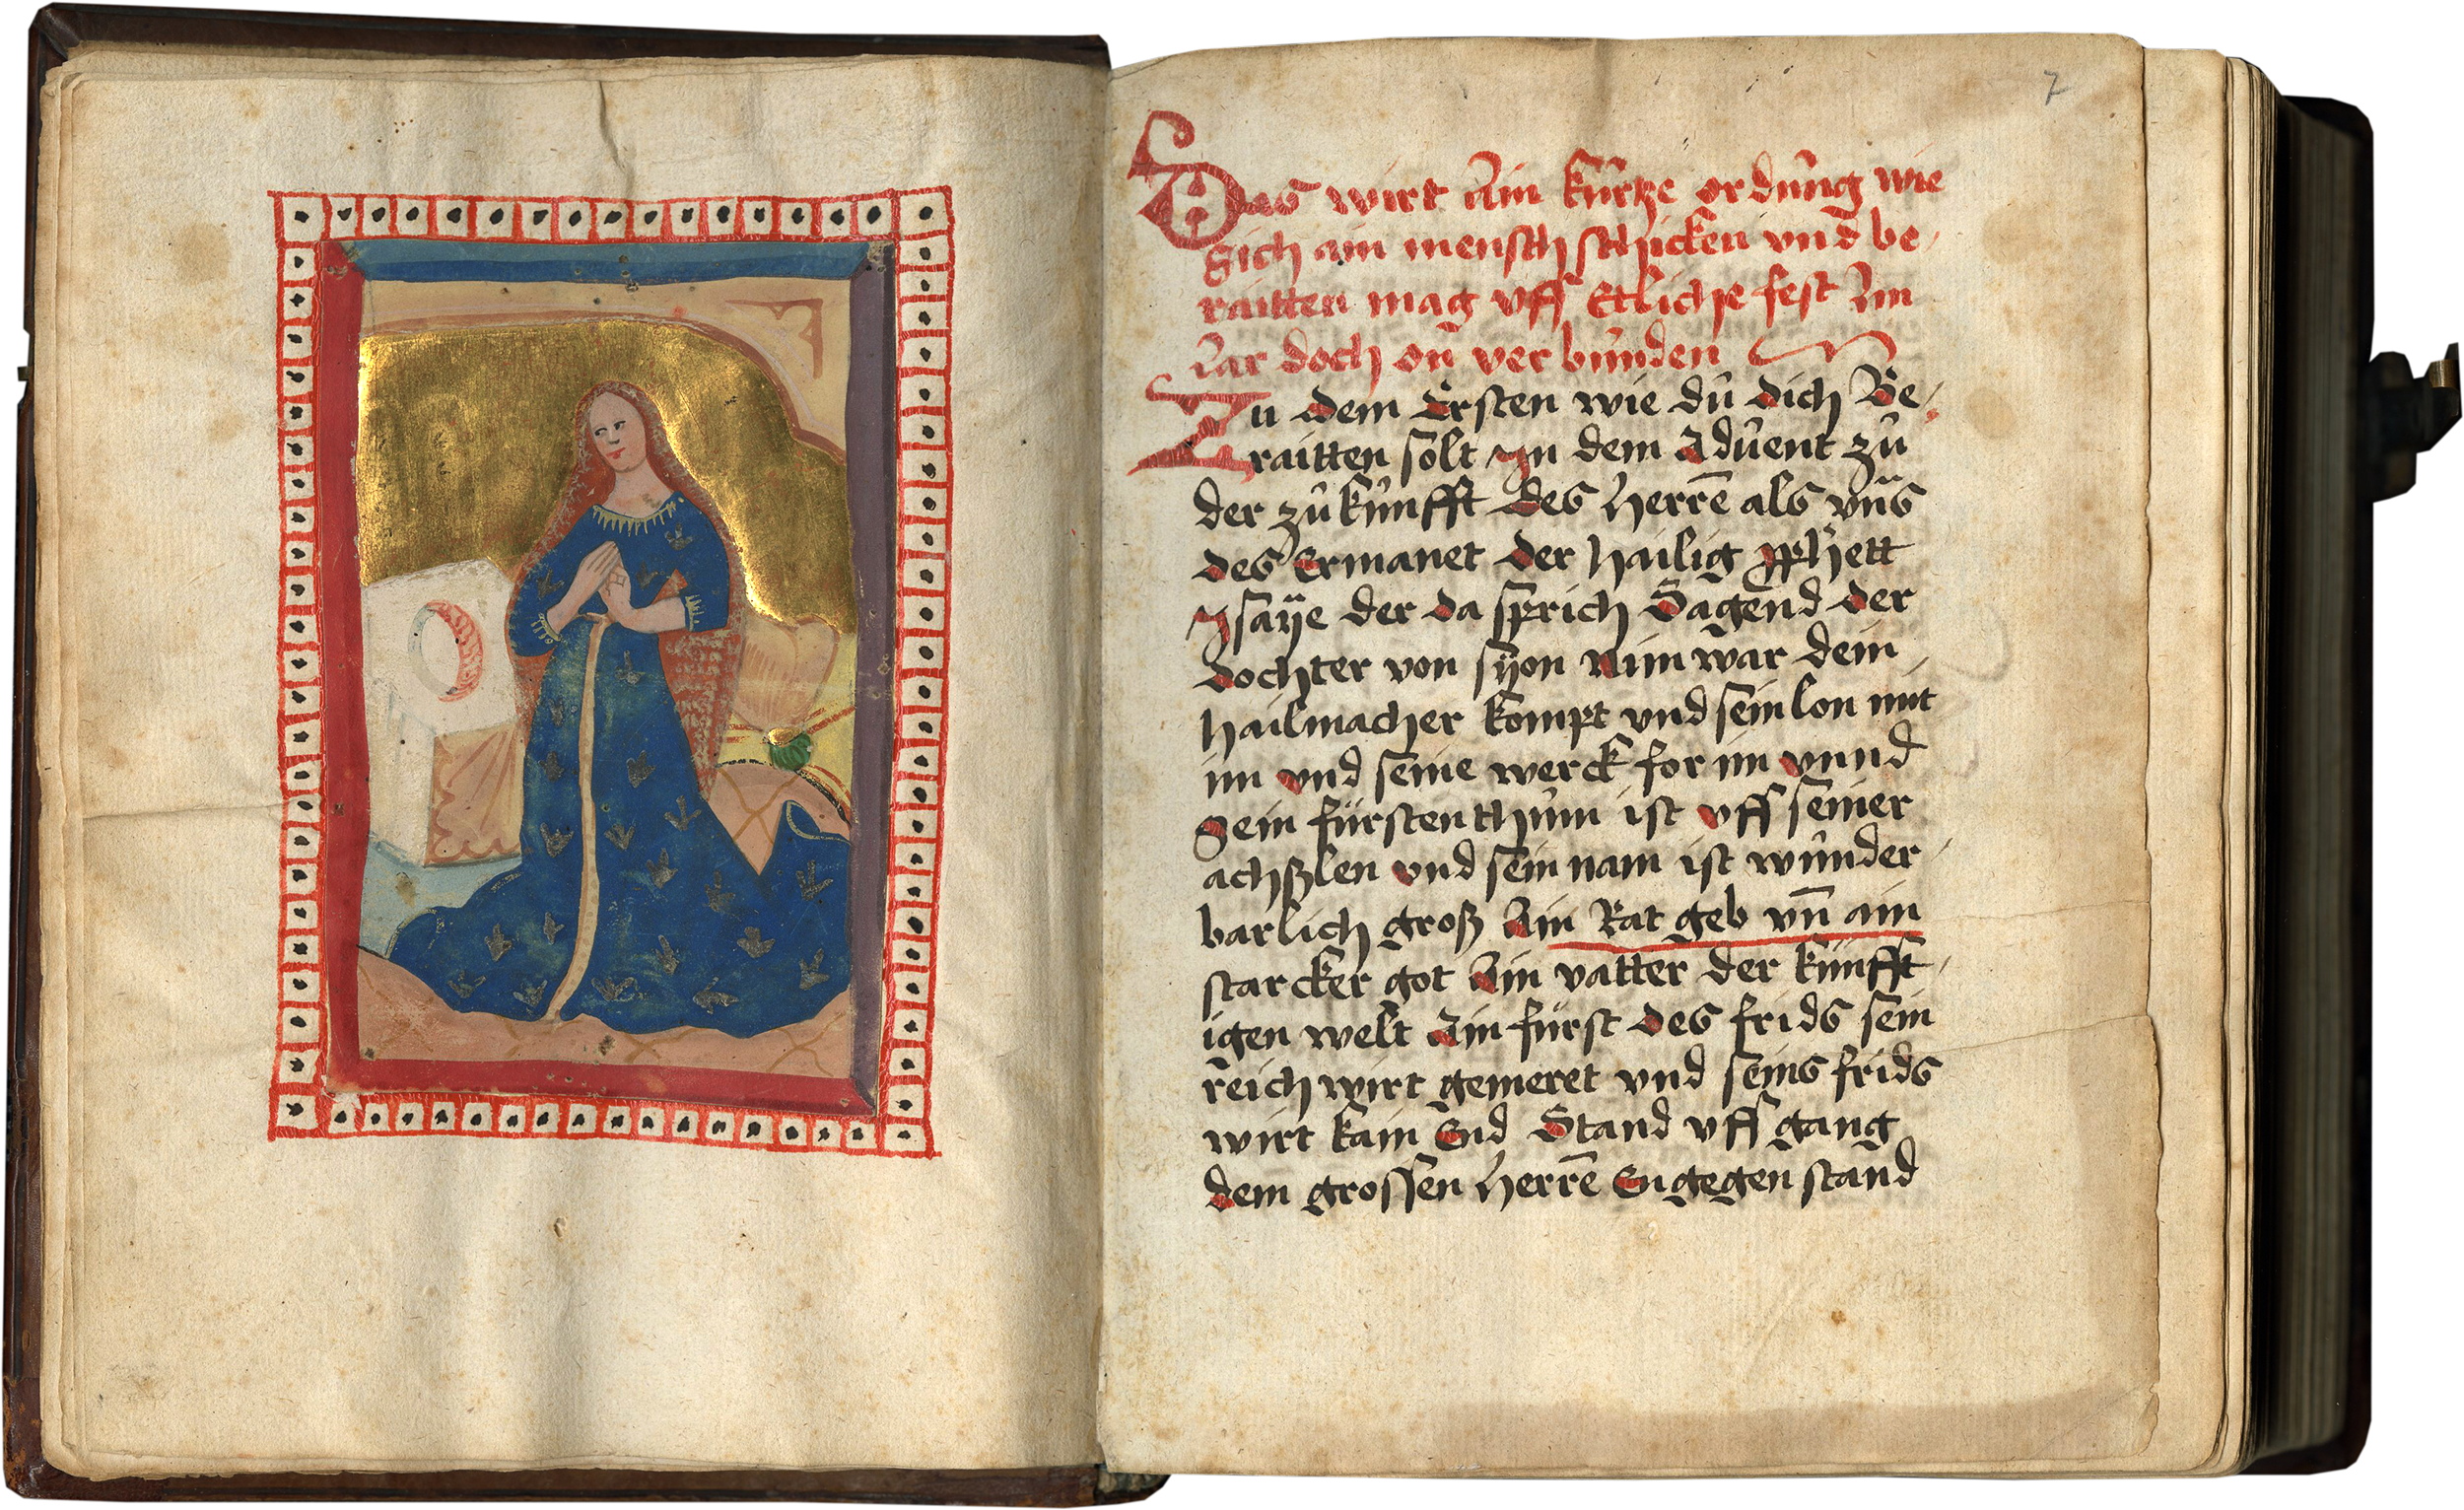 7
Das wirt Ain kurtze ordnung wie
sich ain mensch schicken vnd be-
raitten mag vff Etliche fest Im
Jar doch on verbunden
Zu dem Ersten wie du dich Be-
raitten solt In dem Aduent zu
der zukunfft des Herrē als vns
des Ermanet der hailig pphett
Isaÿe der da sprich Sagend der
dochter von sÿon Nim war dein
hailmacher kompt vnd sein lon mit
im vnd seine werck for im vnnd
Sein fürstenthum ist vff seiner
achßlen vnd sein nam ist wunder
barlich groß Ain Rat geb vn̄ ain
starcker got Ain vatter der künfft
igen welt Ain fürst des frids sein
reich wirt gemeret vnd seins frids
wirt kain End Stand vff gang
dem grossen Herrē Engegen stand